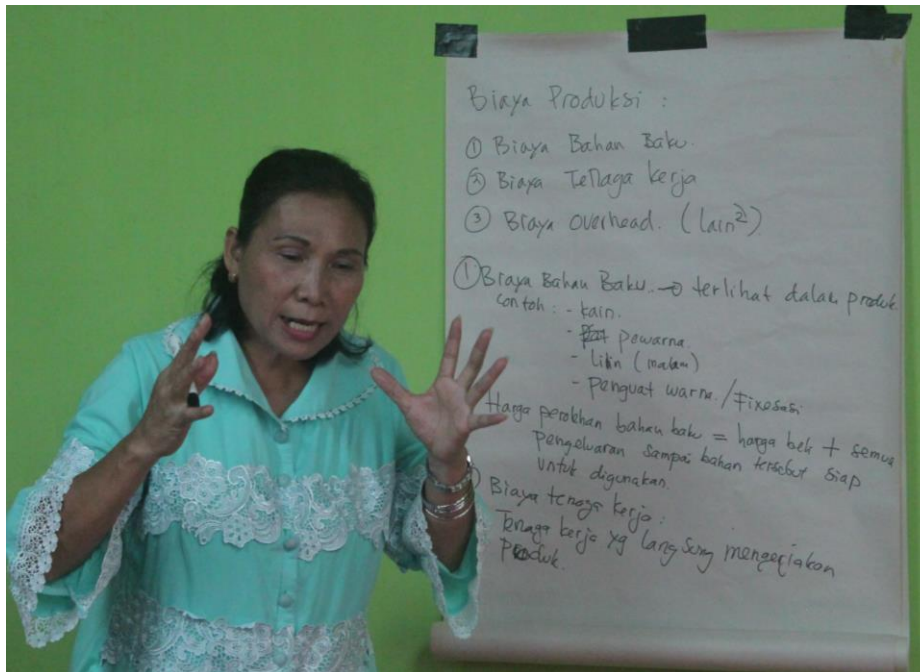 Biaya Produksi :
① Biaya Bahan Baku.
② Biaya Tenaga kerja
③ Biaya overhead. (lain²)
① Biaya Bahan Baku. → terlihat dalam produk
contoh : - kain.
- pewarna.
- Lilin (malam)
- penguat warna. / Fixasasi
Harga perolehan bahan baku = harga beli + semua
pengeluaran sampai bahan tersebut siap
untuk digunakan.
Biaya tenaga kerja :
Tenaga kerja yg langsung mengerjakan
Produk.